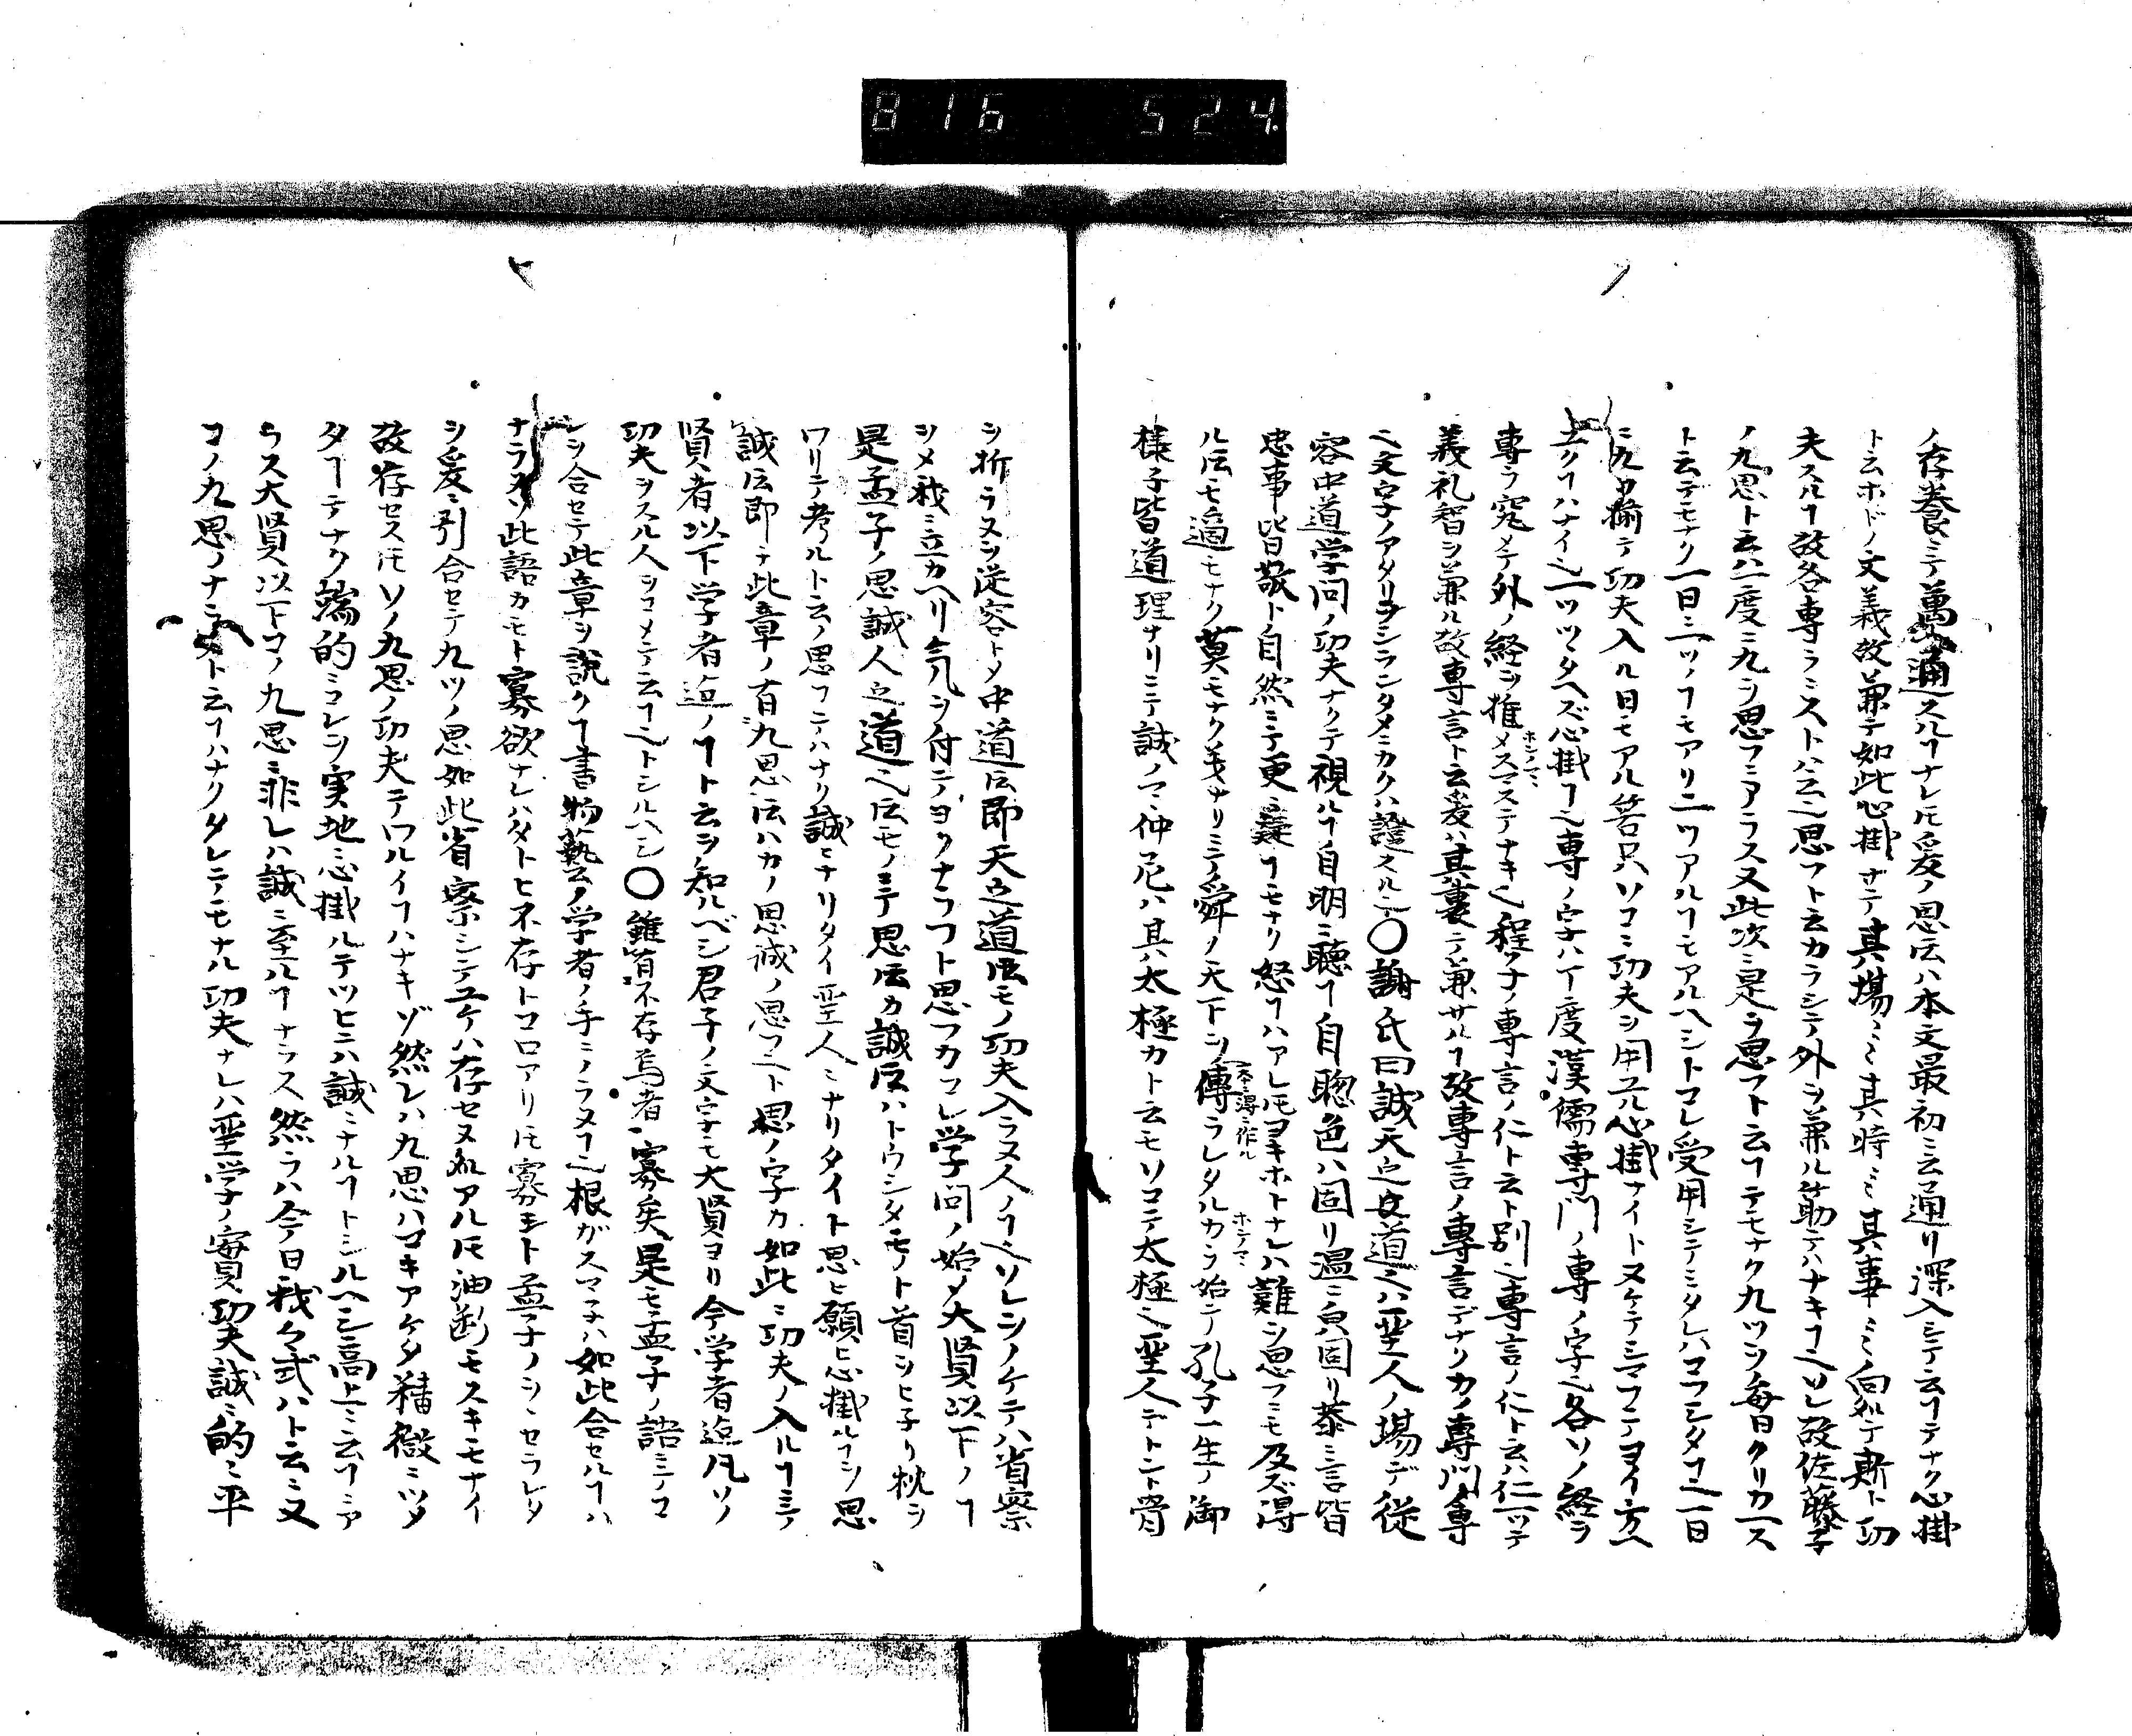 816 524.
ノ存養ニテ萬通スルヿナレ𪜈爰ノ思𫝂ハ本文最初ニ云通リ深入シテ云ヿテナク心掛
ト云ホドノ文義故兼テ如此心掛ケテ其場ミミ其時ミミ其事ミミノ向処テ斯ト功
夫スルヿ故各専ラニストハ云ヘ思フト云カラシテ外ヲ兼ル筋テハナキヿヘソレ故佐藤子
ノ九思ト云ハ一度ニ九ヲ思フニアラス又此次ニ是ヲ思フト云ヿテモナク九ツヲ毎日クリカヘス
ト云テモナク一日ニ一ツノヿモアリ二ツアルヿモアルヘシトコレ受用シテミタレハコフシタヿヘ一日
ニ九ツ揃テ功夫入ル日モアル筈只ソコニ功夫ヲ用ル心掛ナイトヌケテシマフニテヨイ方ヘ
ユクヿハナイヘ一ツツタヘズ心掛ヿヘ専ノ字ハ丁度漢儒専門ノ専ノ字ヘ各ソノ経ヲ
専ラ究メテ外ノ経ヲ推メスマステナキヘ程子ノ専言ノ仁ト云ト別ヘ専言ノ仁ト云ハ仁一ツテ
ホンノマヽ
義礼智ヲ兼ル故専言ト云爰ハ其裏テ兼サルヿ故専言ノ専言デナクカノ専門ノ専
ヘ文字ノアタリヲシランタメニカクハ證スルヘ〇謝氏曰誠天之道ヘハ聖人ノ場デ従
容中道学問ノ功夫ナクテ視ルヿ自明ニ聴ヿ自聡色ハ固リ温ニ皃固リ恭ニ言皆
忠事皆敬ト自然ニテ更ニ疑ヿモナク怒ヿハアレ𪜈ヨキホトナレハ難ヲ思フニモ及ズ得
ル𫝂モ適モナク莫モナク義ナリニテ舜ノ天下ヲ傳ラレタルカラ始テ孔子一生ノ御
本ニ得ニ作ル
ホンノマヽ
様子皆道理ナリニテ誠ノマヽ仲尼ハ其ハ太極カト云モソコテ太極ヘ聖人デトント骨
ヲ折ラヌヲ従容トメ中道𫝂即天之道𫝂モノ功夫入ラヌ人ノヿヘソレヲノケテハ省察
ヲメ我ニ立カヘリ気ヲ付テヨクナフフト思フカコレ学問ノ始メ大賢以下ノヿ
是孟子ノ思誠人之道ヘ𫝂モノニテ思𫝂カ誠𫝂ハトウシタモノト首ヲヒ子リ枕ヲ
ワリテ考ルト云ノ思フニテハナク誠ヒナリタイ聖人ニナリタイト思ヒ願ヒ心掛ルヿヲ思
誠𫝂即チ此章ノ有九思𫝂ハカノ思誠ノ思フヘト思ノ字カ如此ニ功夫ノ入ルヿニテ
賢者以下学者迄ノヿト云ヲ知ルベシ君子ノ文字モ大賢ヨリ今学者迄凡ソノ
功夫ヲスル人ヲコメテ云ヿヘトシルヘシ〇雖有不存焉者寡矣是モ孟子ノ語ニテコ
レヲ合セテ此章ヲ説クヿ書物藝ノ学者ノ手ニノラヌヿヘ根ガスマ子ハ如此合セルヿハ
ナラヌソ此語カモト寡欲ナレハタトヒ不存トコロアリ𪜈寡シト孟子ノヲヽセラレタ
ヲ爰ニ引合セテ九ツノ思如此省察シテユケハ存セヌ処アル𪜈油断モスキモナイ
故存セス𪜈ソノ九思ノ功夫テワルイヿハナキゾ然レハ九思ハコキアケタ精微ニツメ
タヿテナク端的ニコレヲ実地ニ心掛ルテツヒニハ誠ニナルヿトシルヘシ高上ニ云ヿニア
ラス大賢以下コノ九思ニ非レハ誠ニ至ルヿナラス然ラハ今日我々式ハト云ニ又
コノ九思ノナニヌト云ヿハナクタレニテモナル功夫ナレハ聖学ノ實功夫誠ニ的ミ平